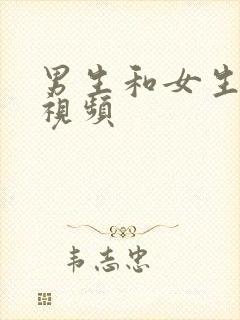 男生和女生
視頻
韦志忠